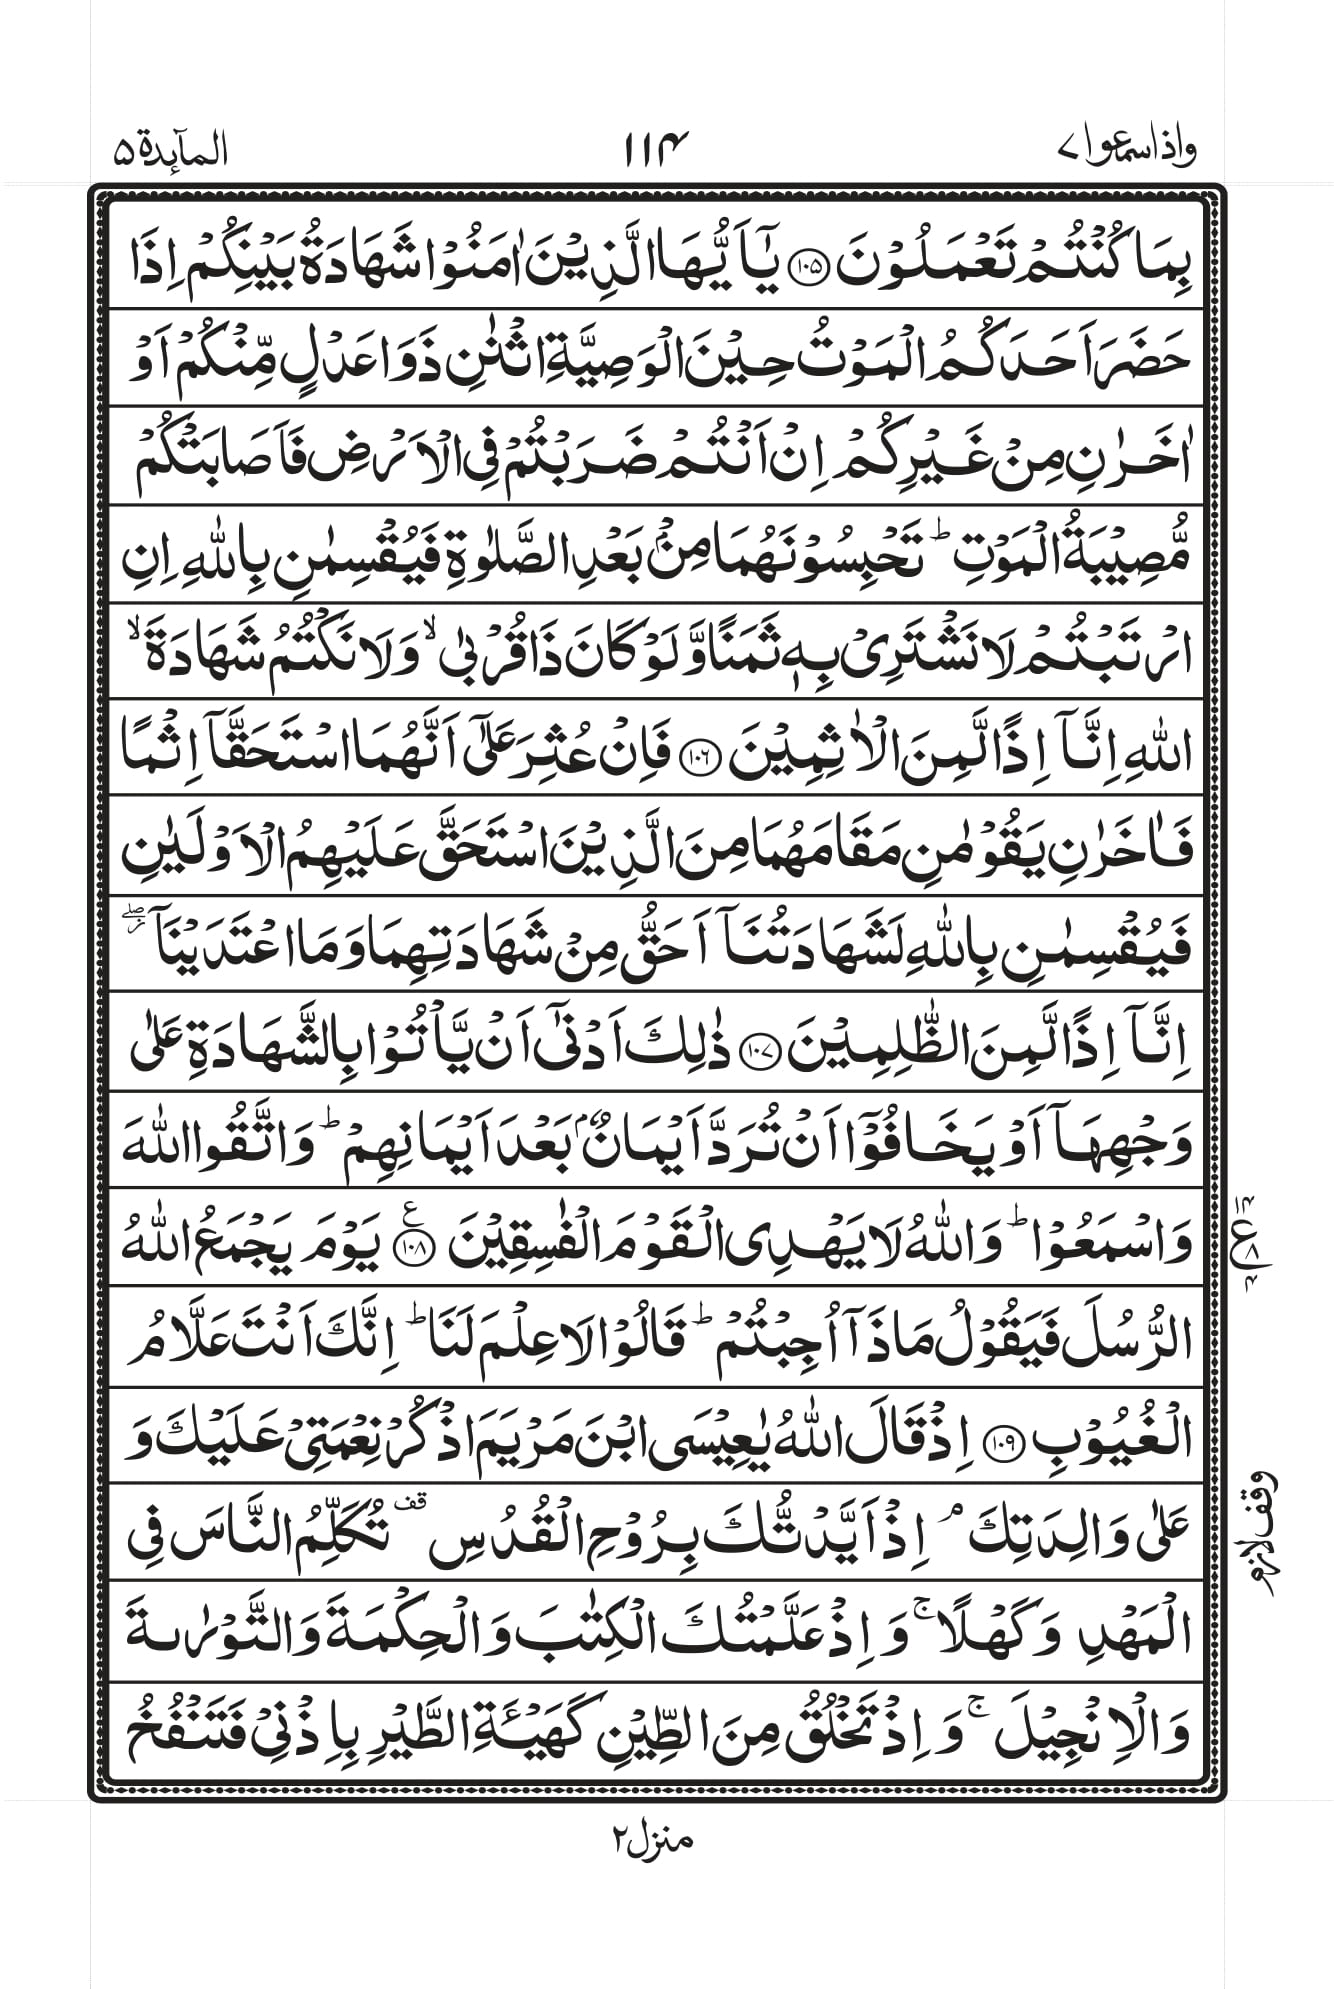 واذاسمعوا ۷
۱۱۴
المآئدة ۵
بِمَا كُنْتُمْ تَعْمَلُوْنَ ۝۱۰۵ يٰٓاَيُّهَا الَّذِيْنَ اٰمَنُوْا شَهَادَةُ بَيْنِكُمْ اِذَا
حَضَرَ اَحَدَكُمُ الْمَوْتُ حِيْنَ الْوَصِيَّةِ اثْنٰنِ ذَوَا عَدْلٍ مِّنْكُمْ اَوْ
اٰخَرٰنِ مِنْ غَيْرِكُمْ اِنْ اَنْتُمْ ضَرَبْتُمْ فِي الْاَرْضِ فَاَصَابَتْكُمْ
مُّصِيْبَةُ الْمَوْتِ ؕ تَحْبِسُوْنَهُمَا مِنْۢ بَعْدِ الصَّلٰوةِ فَيُقْسِمٰنِ بِاللّٰهِ اِنِ
ارْتَبْتُمْ لَا نَشْتَرِيْ بِهٖ ثَمَنًا وَّلَوْ كَانَ ذَا قُرْبٰى ۙ وَلَا نَكْتُمُ شَهَادَةَ ۙ
اللّٰهِ اِنَّآ اِذًا لَّمِنَ الْاٰثِمِيْنَ ۝۱۰۶ فَاِنْ عُثِرَ عَلٰٓى اَنَّهُمَا اسْتَحَقَّآ اِثْمًا
فَاٰخَرٰنِ يَقُوْمٰنِ مَقَامَهُمَا مِنَ الَّذِيْنَ اسْتَحَقَّ عَلَيْهِمُ الْاَوْلَيٰنِ
فَيُقْسِمٰنِ بِاللّٰهِ لَشَهَادَتُنَآ اَحَقُّ مِنْ شَهَادَتِهِمَا وَمَا اعْتَدَيْنَآ ۖز
اِنَّآ اِذًا لَّمِنَ الظّٰلِمِيْنَ ۝۱۰۷ ذٰلِكَ اَدْنٰٓى اَنْ يَّاْتُوْا بِالشَّهَادَةِ عَلٰى
وَجْهِهَآ اَوْ يَخَافُوْٓا اَنْ تُرَدَّ اَيْمَانٌۢ بَعْدَ اَيْمَانِهِمْ ؕ وَاتَّقُوا اللّٰهَ
وَاسْمَعُوْا ؕ وَاللّٰهُ لَا يَهْدِى الْقَوْمَ الْفٰسِقِيْنَ ۝۱۰۸ ع يَوْمَ يَجْمَعُ اللّٰهُ
الرُّسُلَ فَيَقُوْلُ مَاذَآ اُجِبْتُمْ ؕ قَالُوْا لَا عِلْمَ لَنَا ؕ اِنَّكَ اَنْتَ عَلَّامُ
الْغُيُوْبِ ۝۱۰۹ اِذْ قَالَ اللّٰهُ يٰعِيْسَى ابْنَ مَرْيَمَ اذْكُرْ نِعْمَتِيْ عَلَيْكَ وَ
عَلٰى وَالِدَتِكَ ۘ اِذْ اَيَّدْتُّكَ بِرُوْحِ الْقُدُسِ قف تُكَلِّمُ النَّاسَ فِي
الْمَهْدِ وَكَهْلًا ۚ وَاِذْ عَلَّمْتُكَ الْكِتٰبَ وَالْحِكْمَةَ وَالتَّوْرٰىةَ
وَالْاِنْجِيْلَ ۚ وَاِذْ تَخْلُقُ مِنَ الطِّيْنِ كَهَيْـَٔةِ الطَّيْرِ بِاِذْنِيْ فَتَنْفُخُ
۱۴ ع ۸ ۴
وقف لازم
منزل ۲